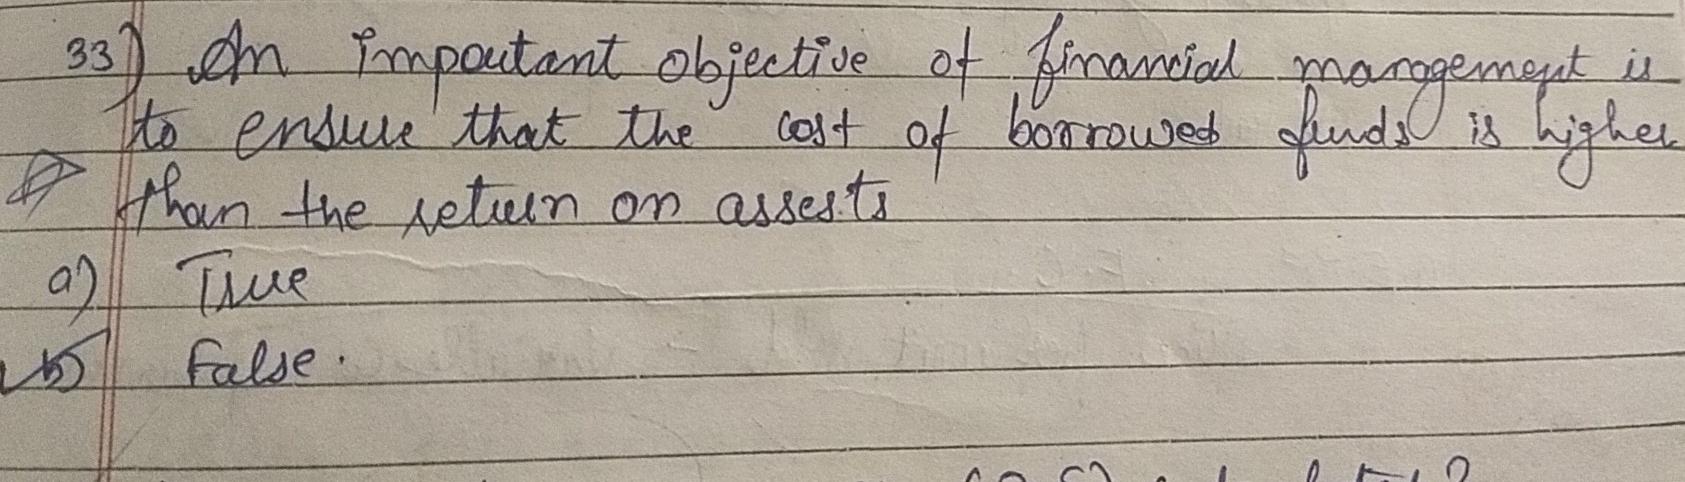 33) An impoutant objective of financial management is
to ensure that the cost of borrowed funds is higher
than the return on assests
a) True
b) False.